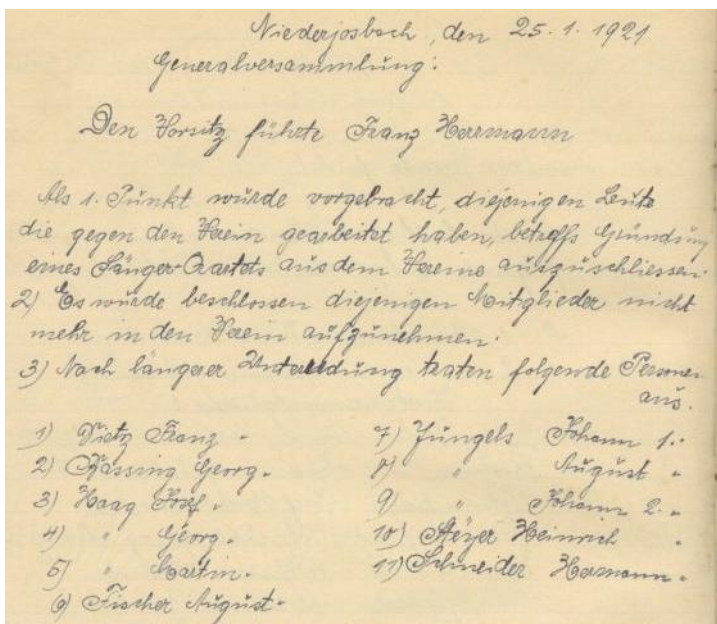 Niederjosbach, den 25. 1. 1921
Generalversammlung:
Den Vorsitz führte Franz Herrmann
Als 1. Punkt wurde vorgebracht, diejenigen Leute
die gegen den Verein gearbeitet haben, betreffs Gründung
eines Sänger-Quartets aus dem Vereine auszuschliessen.
2) Es wurde beschlossen diejenigen Mitglieder nicht
mehr in den Verein aufzunehmen.
3) Nach längerer Unterredung traten folgende Personen
aus.
1) Dietz Franz.
2) Kassing Georg.
3) Haag Josef.
4) " Georg.
5) " Martin.
6) Fischer August.
7) Jüngels Johann 1.
8) " August.
9) " Johann 2.
10) Steyer Heinrich.
11) Schneider Hermann.